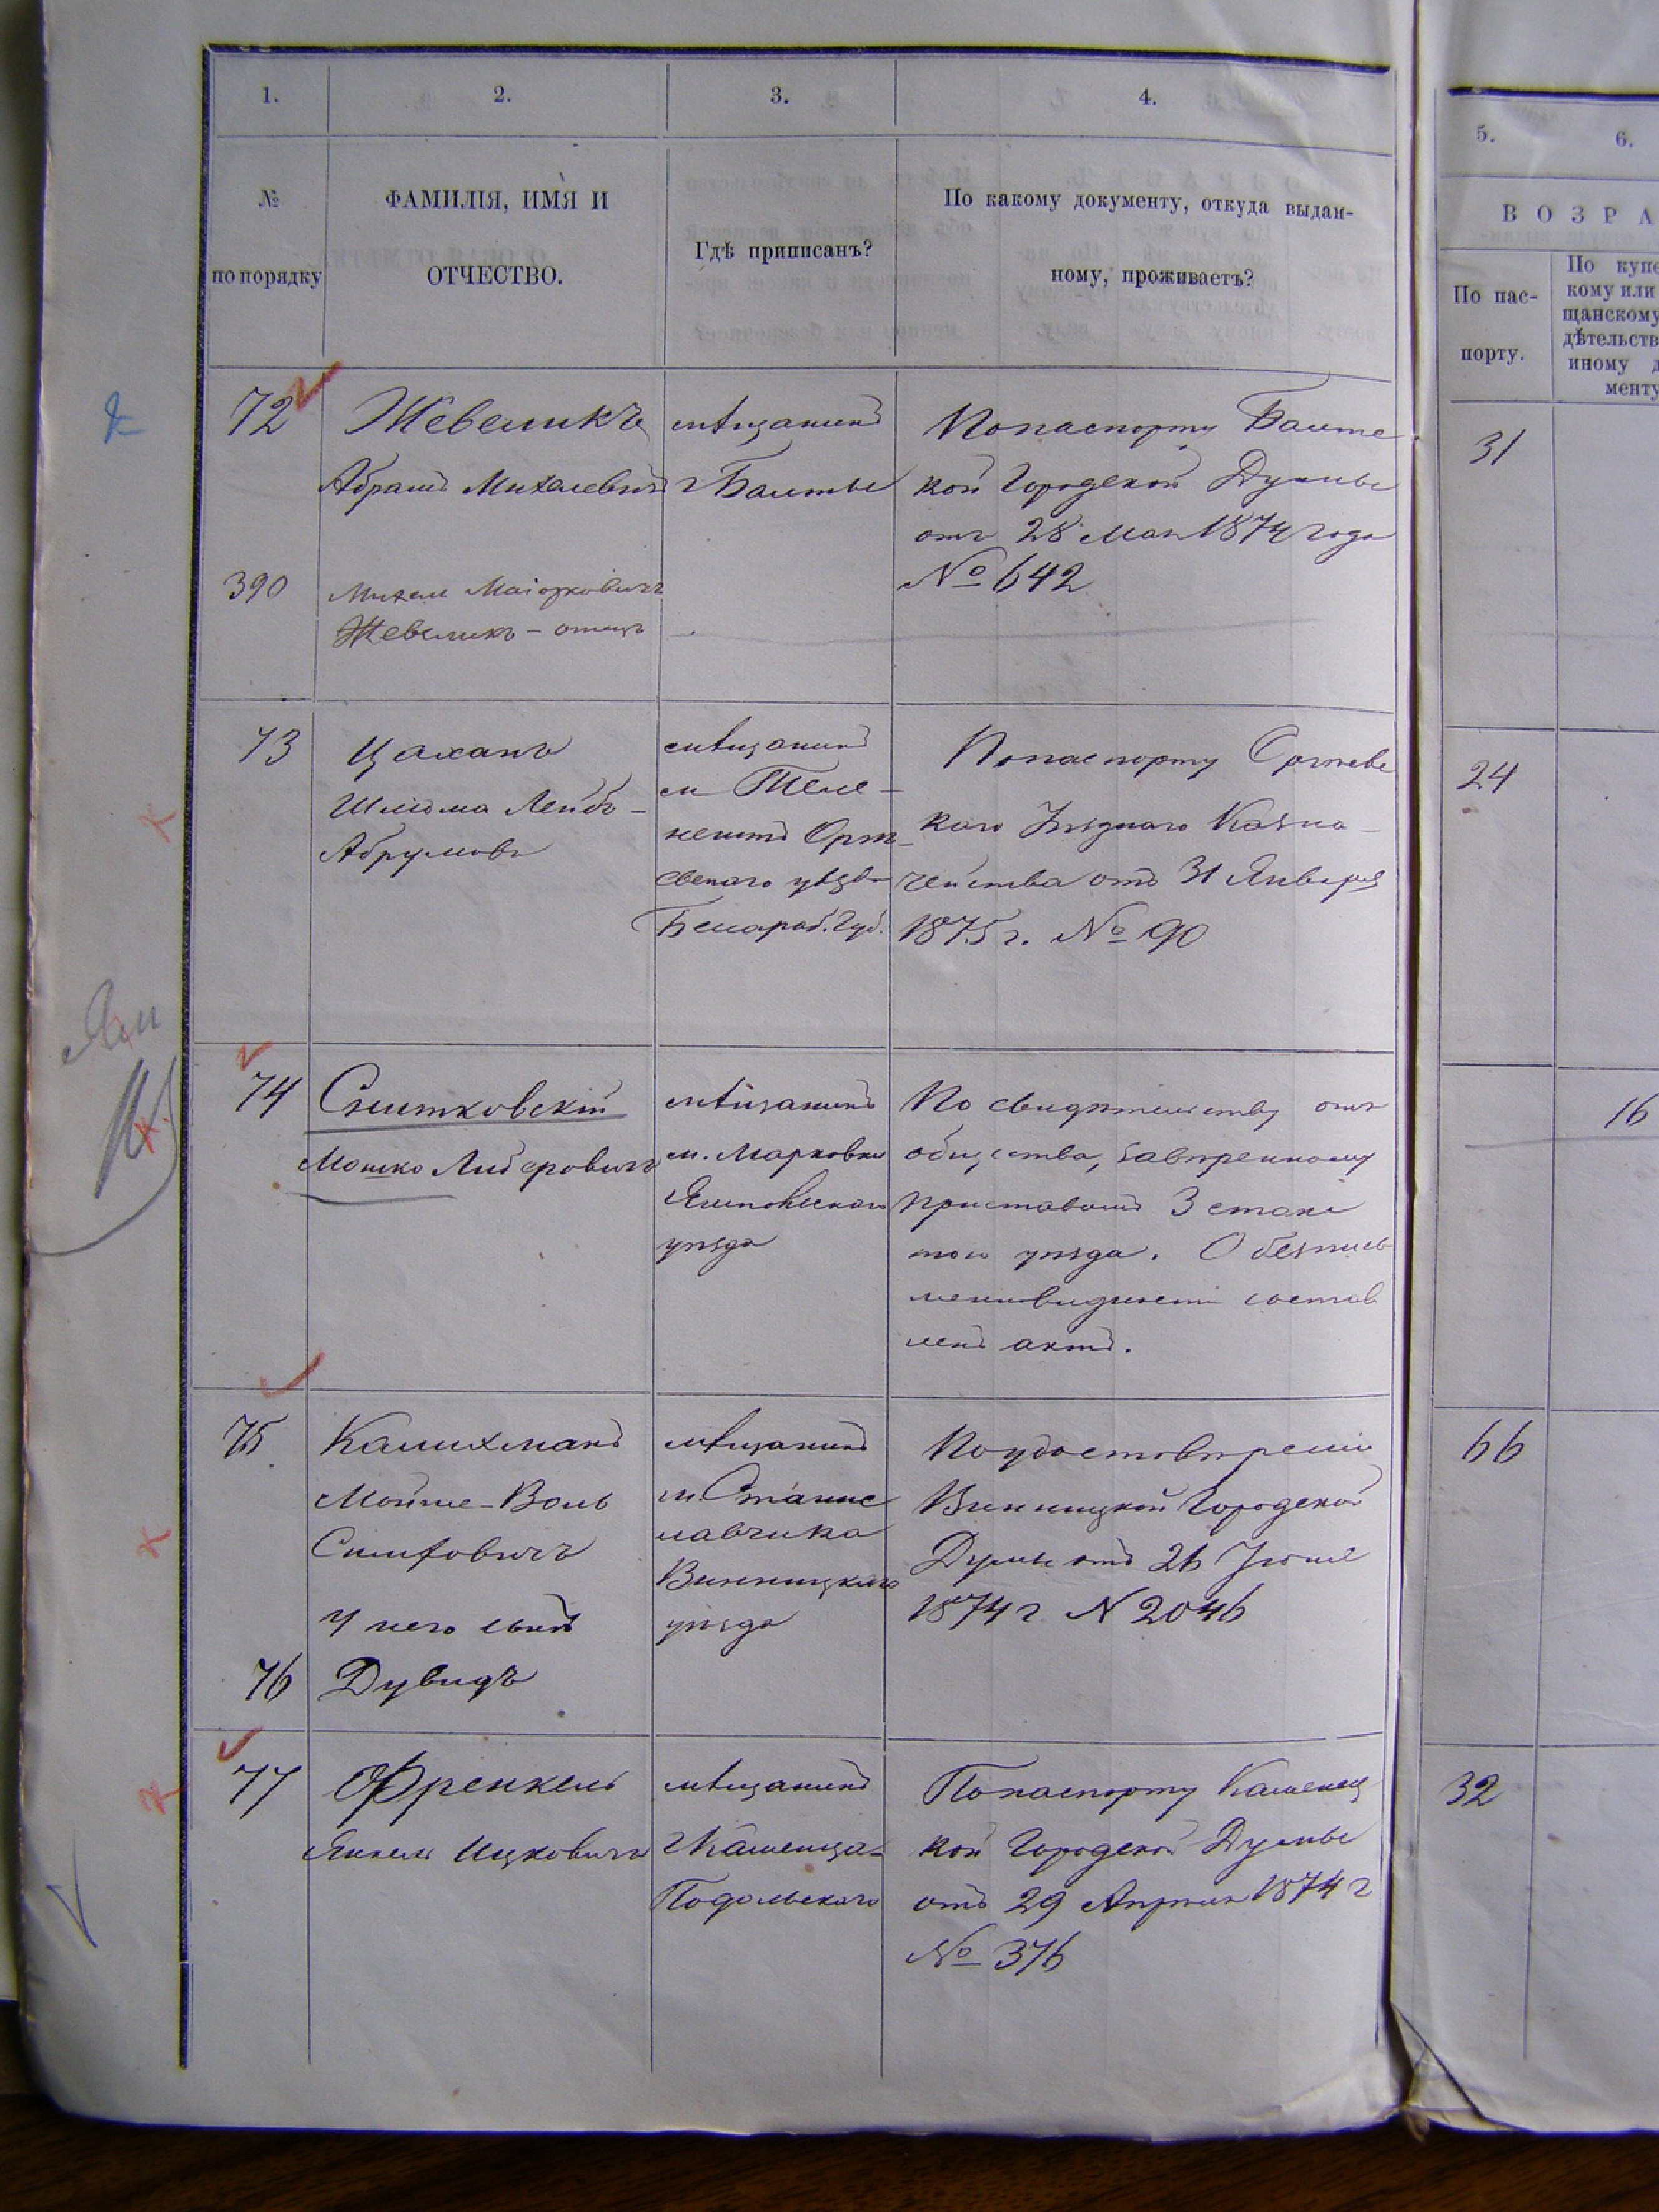 1.
2.
3.
4.
5.
6.
№
по порядку
ФАМИЛІЯ, ИМЯ И
ОТЧЕСТВО.
Гдѣ приписанъ?
По какому документу, откуда выдан-
ному, проживаетъ?
ВОЗРА
По пас-
порту.
По купе
кому или
щанскому
дѣтельств
иному д
менту
72
Жевеликъ
Абрамъ Михелевичъ
мѣщанинъ
г Балты
По паспорту Балтс
кой Городской Думы
отъ 28 Мая 1874 года
№ 642
31
390
Михель Маіорковичъ
Жевеликъ - отецъ
73
Цаханъ
Шлёма Лейбъ-
Абрумовъ
мѣщанинъ
м Теле-
нештъ Орг-
ѣевскаго уѣзда
Бессараб. Губ.
По паспорту Оргѣевс
каго Уѣзднаго Казна-
чейства отъ 31 Января
1875 г. № 90
24
74
Снитковскій
Мошко Либеровичъ
мѣщанинъ
м. Марковки
Ямпольскаго
уѣзда
По свидѣтельству отъ
общества, завѣренному
приставомъ 3 стана
того уѣзда. О безпись
менновидности состав
ленъ актъ.
16
75
Калихманъ
Мойше-Воль
Сımховичъ
У него сынъ
76
Дувидъ
мѣщанинъ
м Станис
лавчика
Винницкаго
уѣзда
По удостовѣренію
Винницкой Городской
Думы отъ 26 Іюня
1874 г. N 2046
66
77
Френкель
Янкель Ицковичъ
мѣщанинъ
г Каменца-
Подольскаго
По паспорту Каменец
кой Городской Думы
отъ 29 Апрѣля 1874 г
№ 376
32